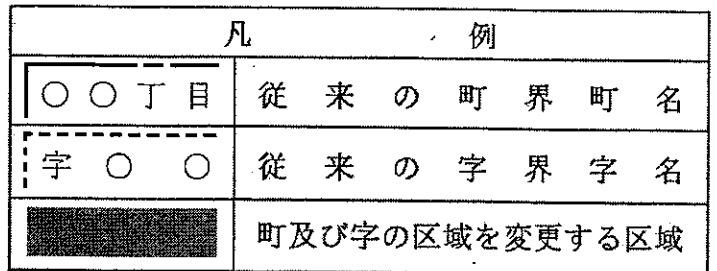 凡例
○○丁目 従来の町界町名
字○○ 従来の字界字名
町及び字の区域を変更する区域